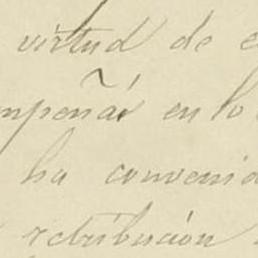 virtud de e
mpeñar en lo
ha convenid
retribución